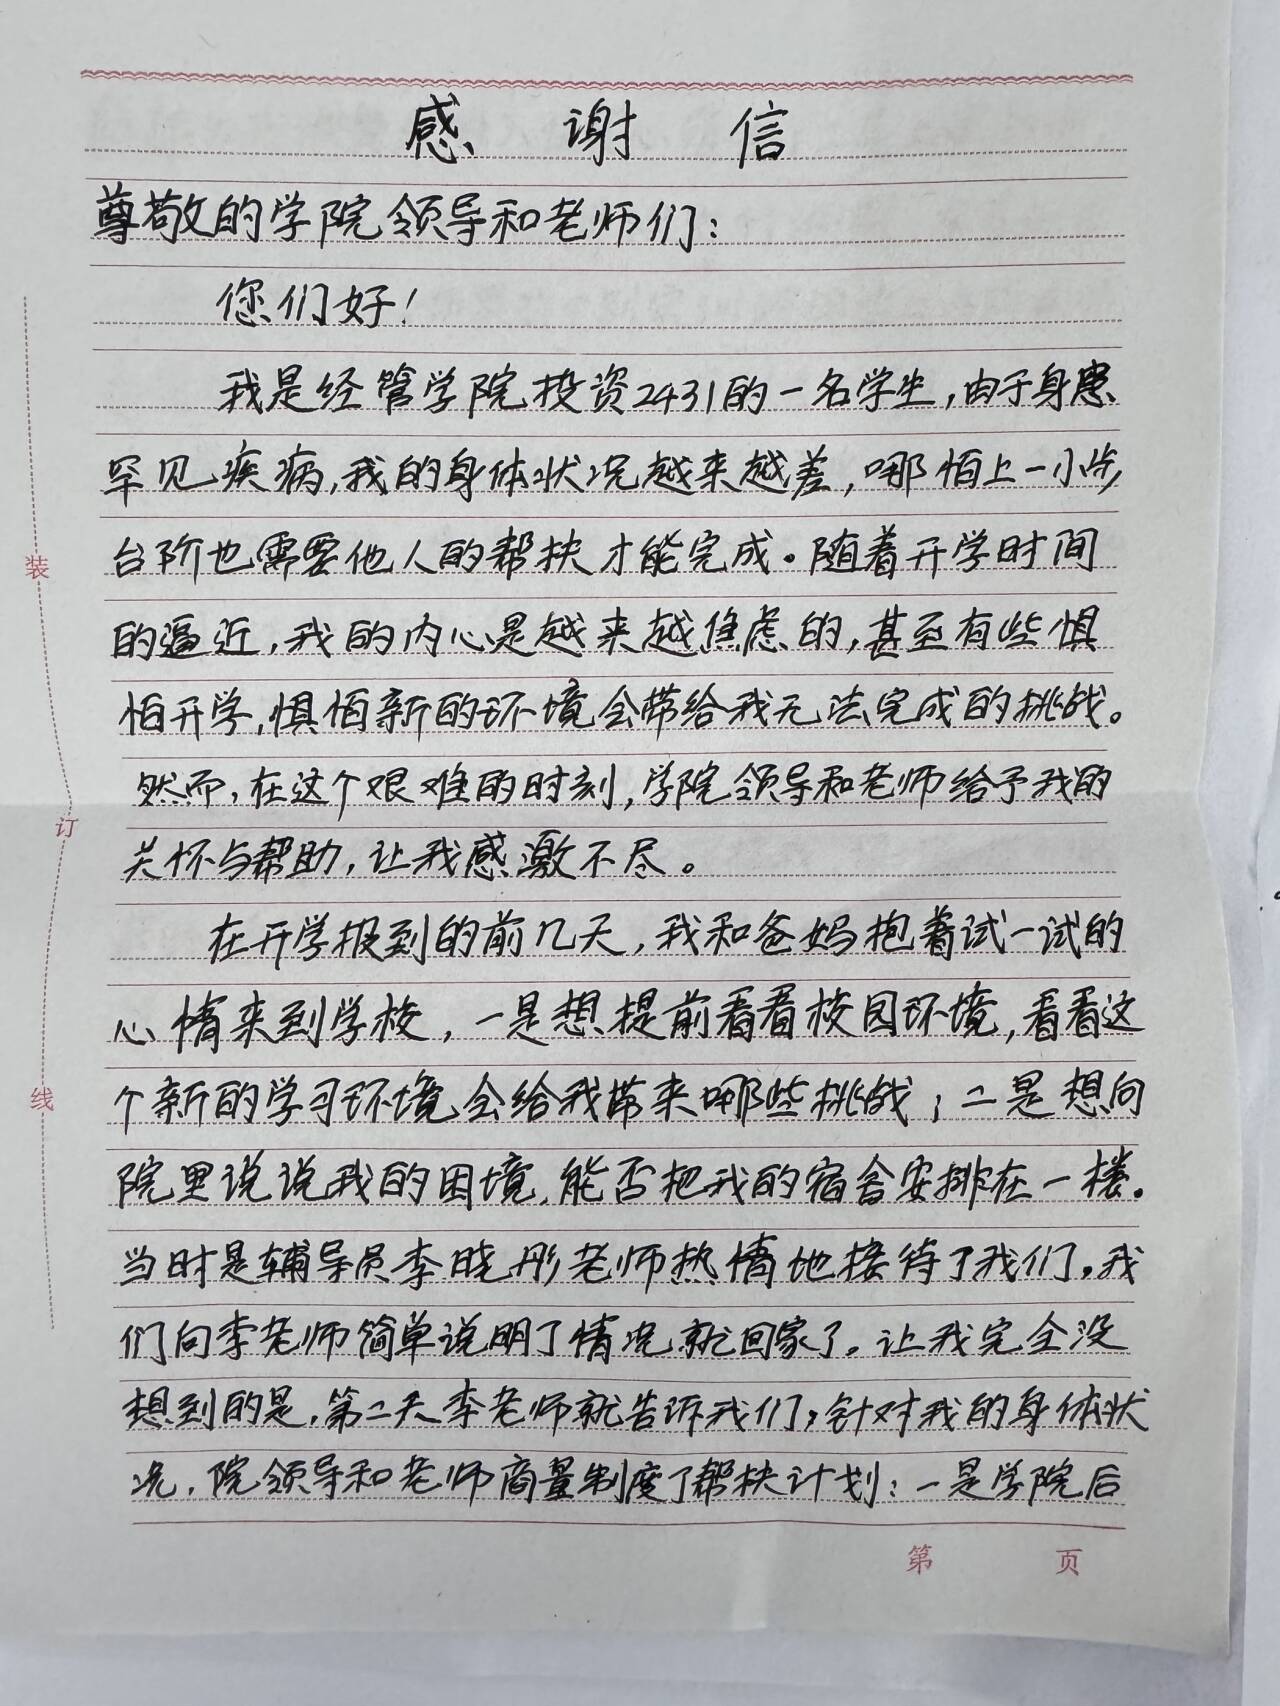 感谢信
尊敬的学院领导和老师们：
您们好！
我是经管学院投资2431的一名学生，由于身患
罕见疾病，我的身体状况越来越差，哪怕上一小步
台阶也需要他人的帮扶才能完成。随着开学时间
的逼近，我的内心是越来越焦虑的，甚至有些惧
怕开学，惧怕新的环境会带给我无法完成的挑战。
然而，在这个艰难的时刻，学院领导和老师给予我的
关怀与帮助，让我感激不尽。
在开学报到的前几天，我和爸妈抱着试一试的
心情来到学校，一是想提前看看校园环境，看看这
个新的学习环境会给我带来哪些挑战；二是想向
院里说说我的困境，能否把我的宿舍安排在一楼。
当时是辅导员李晓彤老师热情地接待了我们，我
们向李老师简单说明了情况就回家了。让我完全没
想到的是，第二天李老师就告诉我们，针对我的身体状
况，院领导和老师商量制度了帮扶计划：一是学院后
装
订
线
第 页